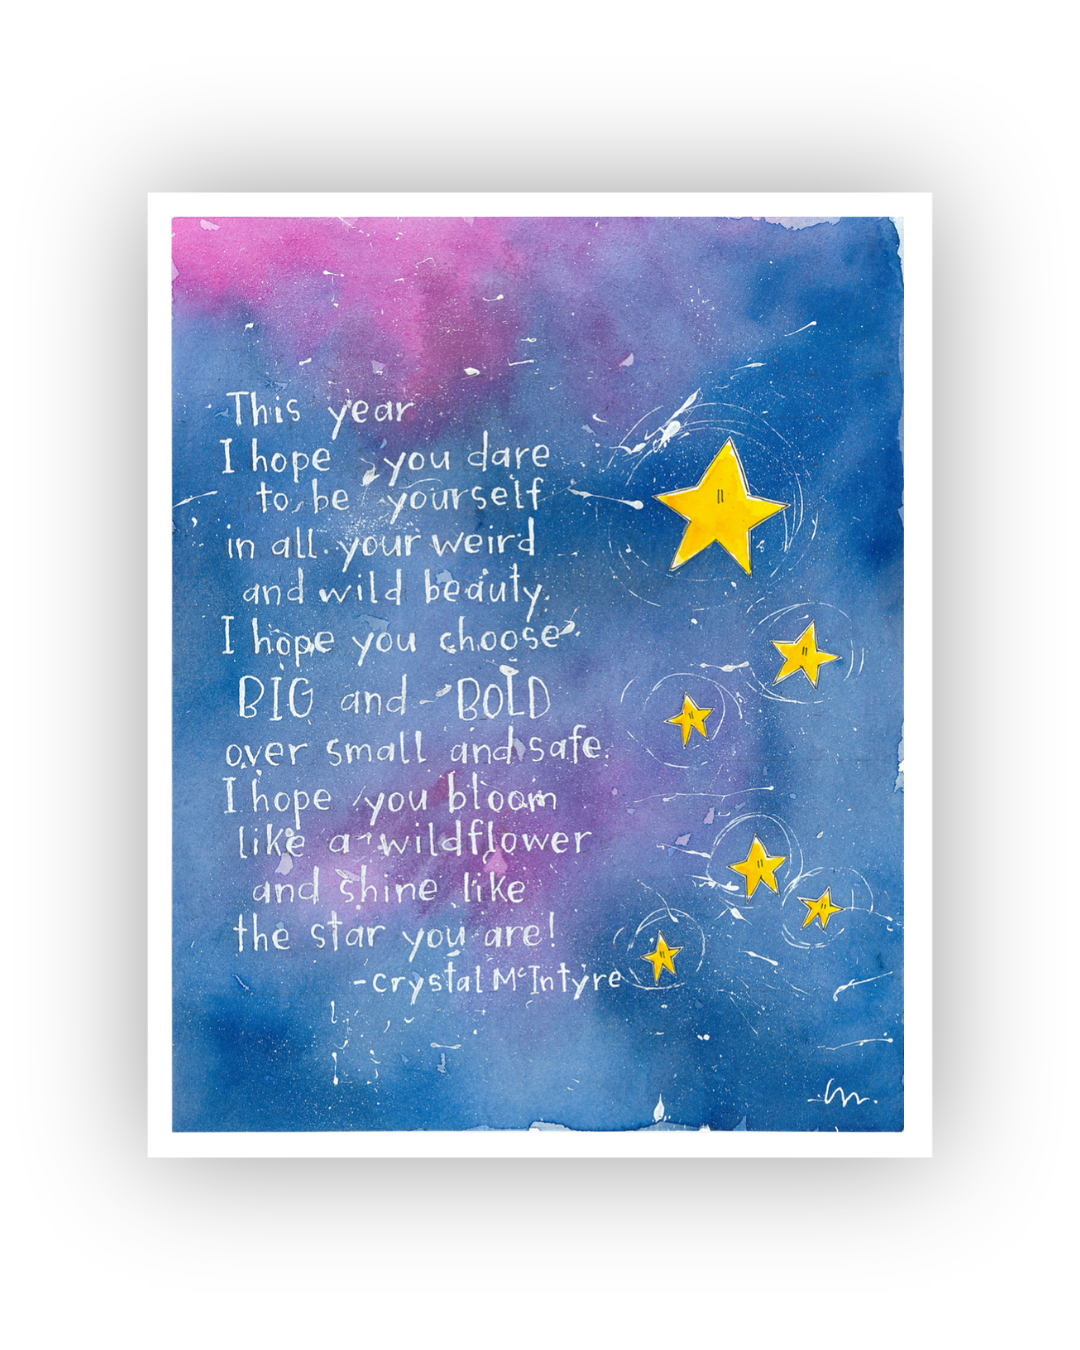 This year
I hope you dare
to be yourself
in all your weird
and wild beauty.
I hope you choose
BIG and BOLD
over small and safe.
I hope you bloom
like a wildflower
and shine like
the star you are!
-crystal McIntyre